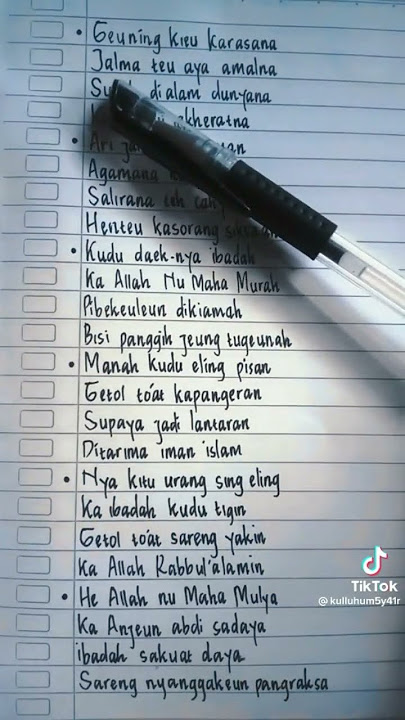 Geuning kieu karasana
Jalma teu aya amalna
di alam dunyana
akheratna
Ari
Agamana
Salirana teh
Henteu kasorang
Kudu daek-nya ibadah
Ka Allah Nu Maha Murah
Pibekeuleun dikiamah
Bisi panggih jeung tugeunah
Manah kudu eling pisan
Getol to'at kapangeran
Supaya jadi lantaran
Ditarima iman islam
Nya kitu urang sing eling
Ka ibadah kudu tigin
Getol to'at sareng yakin
Ka Allah Rabbul'alamin
He Allah nu Maha Mulya
Ka Anjeun abdi sadaya
ibadah sakuat daya
Sareng nyanggakeun pangraksa
TikTok
@kulluhum5y41r